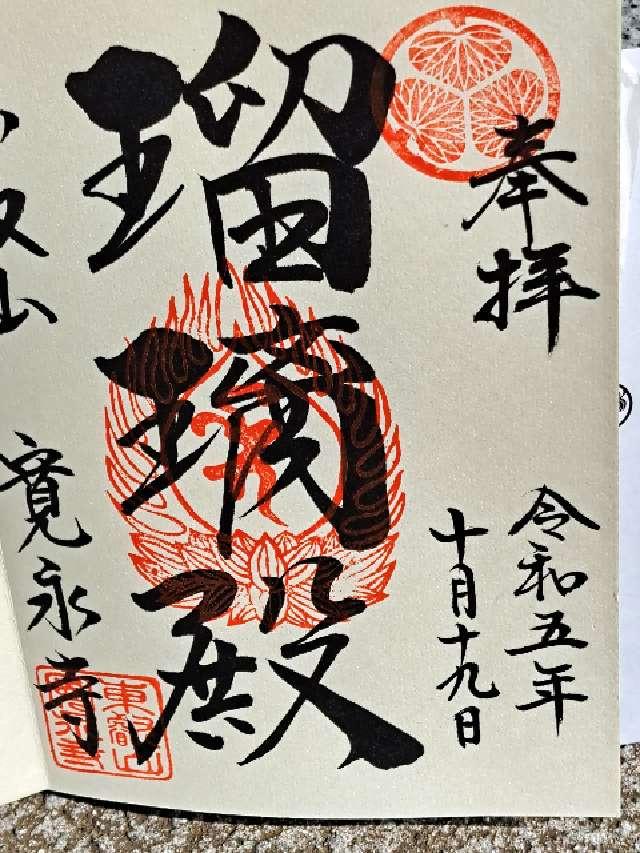 奉拝
令和五年
十月十九日
瑠璃殿
叡山
寛永寺